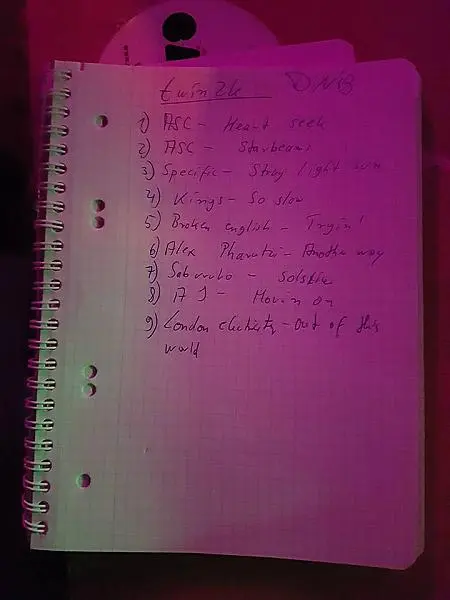 twin2k DNB
1) ASC - Heart seek
2) ASC - Starbeams
3) Specific - Stray light
4) Kings - So slow
5) Broken english - Tryin'
6) Alex - Another way
7) - Solstice
8) A J - Movin on
9) London - Out of this
world